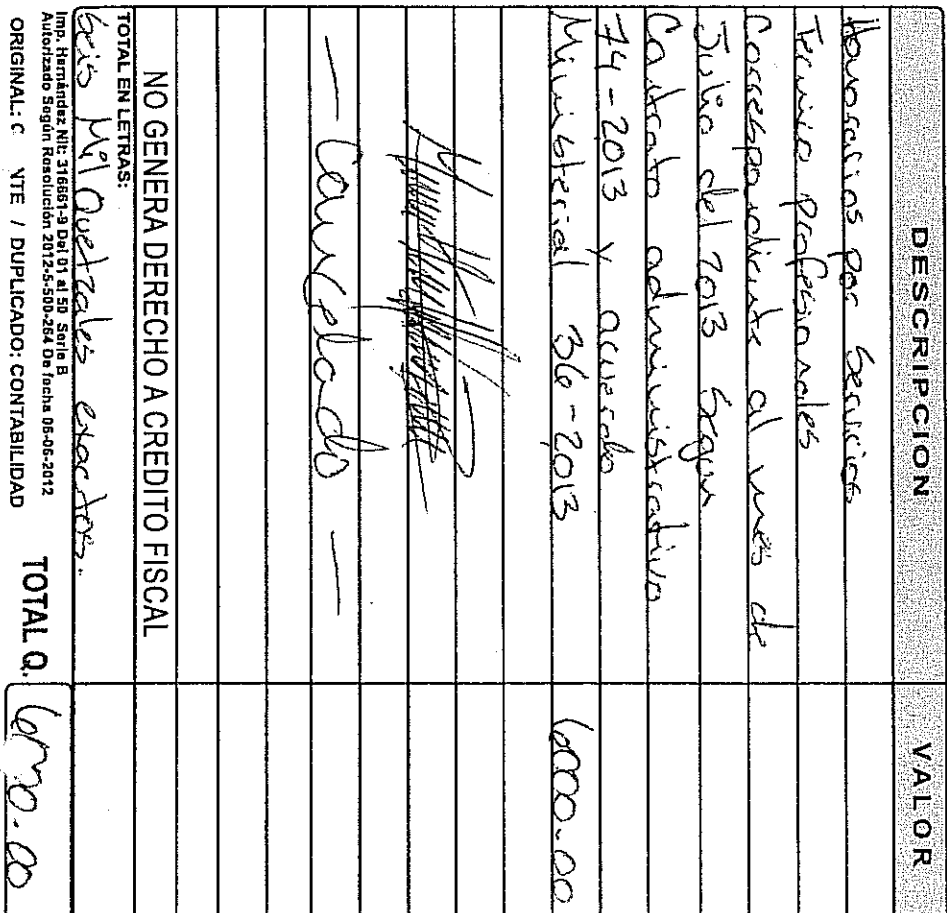 DESCRIPCION VALOR
Honorarios por Servicios
Tecnico Profesionales
Correspondiente al mes de
Julio del 2013 Segun
Contrato administrativo
74-2013 y acuerdo
Ministerial 36-2013 6000.00
— Cancelado —
NO GENERA DERECHO A CREDITO FISCAL
TOTAL EN LETRAS:
Seis Mil Quetzales exactos.
Imp. Hernández Nit: 316661-9 Del 01 al 50 Serie B
Autorizado Según Resolución 2012-5-500-264 De fecha 06-06-2012
ORIGINAL: C NTE / DUPLICADO: CONTABILIDAD
TOTAL Q. 6000.00